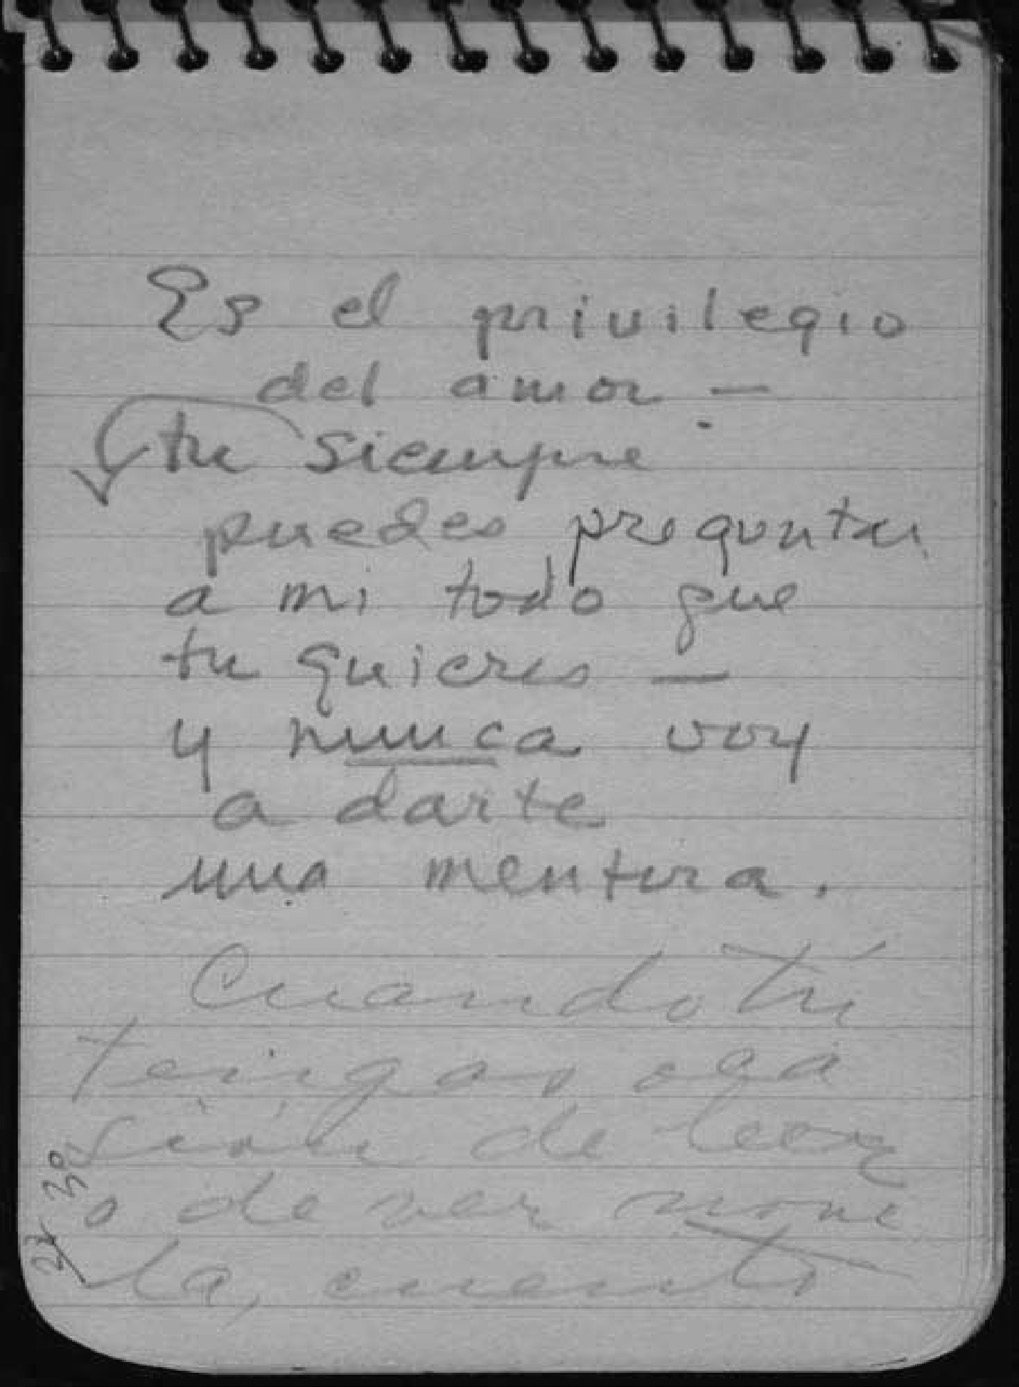 Es el privilegio
del amor —
tu siempre
puedes preguntar
a mi todo que
tu quieres —
y nunca voy
a darte
una mentira.
Cuando tú
tengas oca
sión de leer
o de ver nove
la, cuento